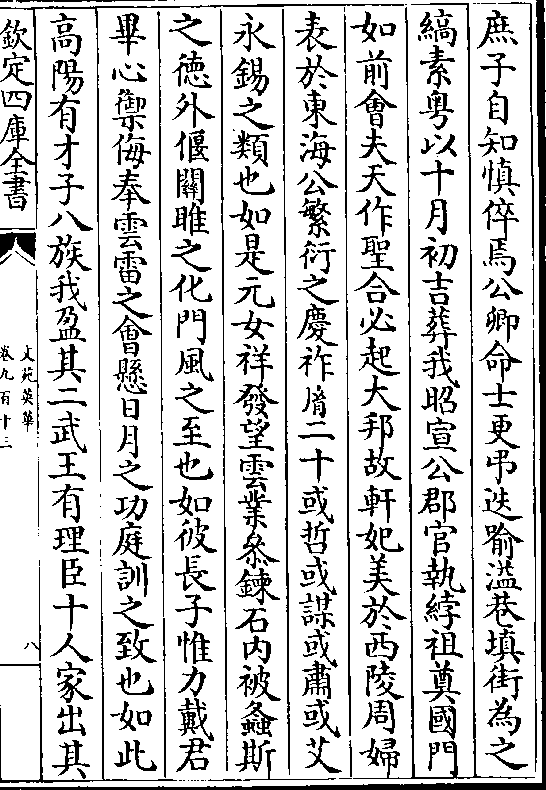 庶子自知慎倅焉公卿命士更弔迭踰溢巷填街為之
縞素粤以十月初吉葬我昭宣公郡官執綍祖奠國門
如前會夫天作聖合必起大邦故軒妃美於西陵周婦
表於東海公繁衍之慶祚胤二十或哲或謀或肅或艾
永錫之類也如是元女祥發望雲業叅鍊石内被螽斯
之德外偃關雎之化門風之至也如彼長子惟力戴君
畢心禦侮奉雲雷之會懸日月之功庭訓之致也如此
高陽有才子八族我盈其二武王有理臣十人家出其
欽定四庫全書
文苑英華
卷九百十三
八